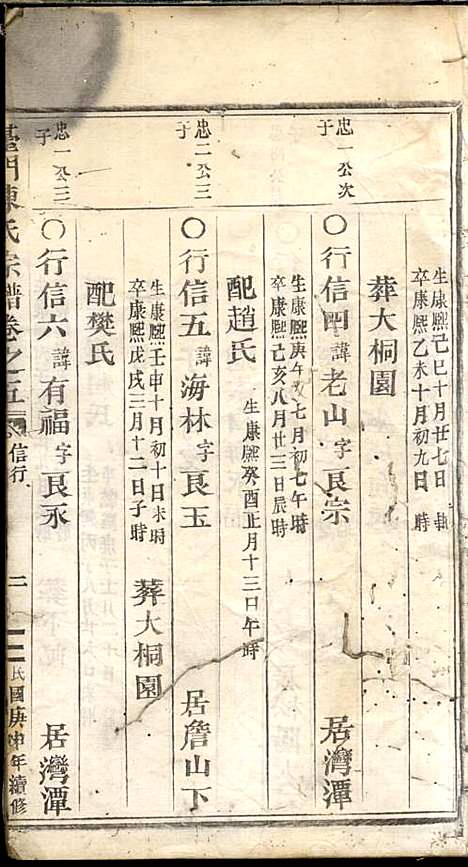 生康熙己巳十月廿七日
卒康熙乙未十月初九日 時
葬大桐園
忠一公次
于
〇行信四諱老山字良宗 居灣潭
生康熙庚午七月初七午時
卒康熙己亥八月廿三日辰時
配趙氏
生康熙癸酉正月十三日午時
忠二公三
于
〇行信五諱海林字良玉 居詹山下
生康熙壬申十月初十日未時
卒康熙戊戌三月十二日子時
葬大桐園
配樊氏
忠一公三
于
〇行信六諱有福字良永 居灣潭
陳氏宗譜卷之五 信行 二 民國庚申年續修